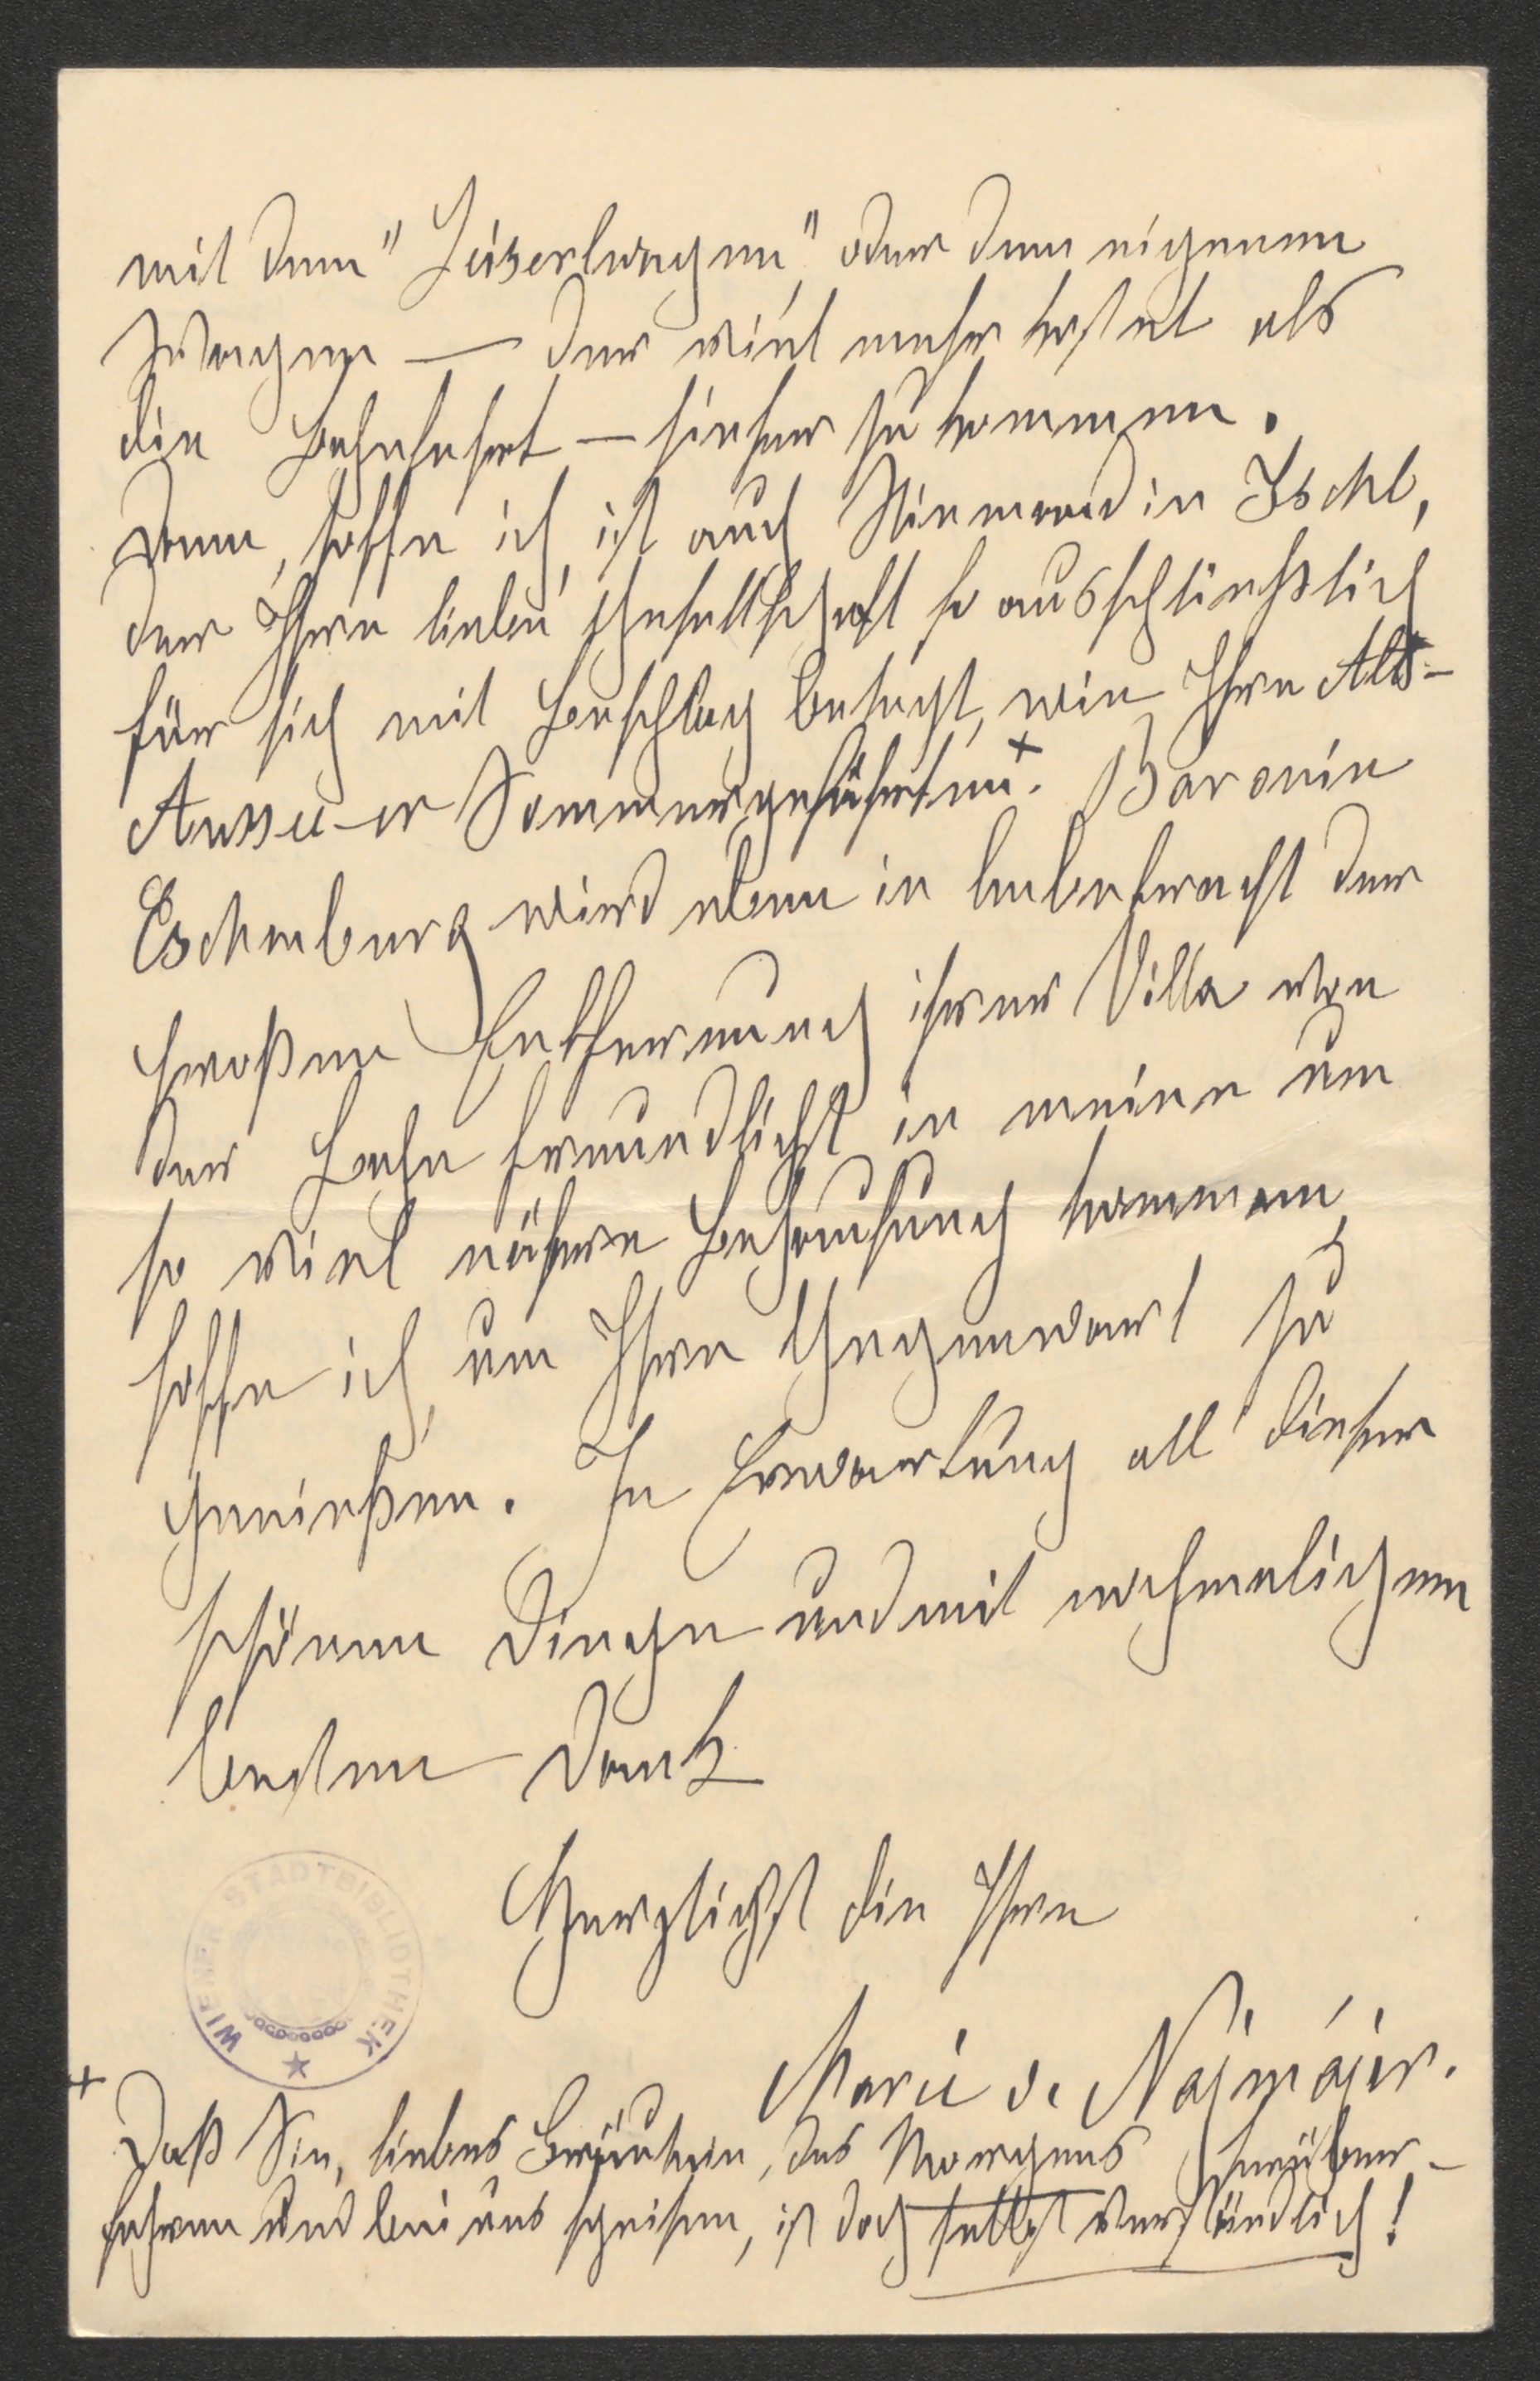 mit dem "Loserlwagen" oder dem eigenen
Wagen — der viel mehr kostet als
die Bahnfahrt — hieher zu kommen.
Denn, hoffe ich, ist auch Niemand in Ischl,
der Ihre liebe Gesellschaft so ausschließlich
für sich mit Beschlag belegt, wie Ihre Alt-
Aussee-er Sommergefährtin.+ Baronin
Eschenburg wird eben in Anbetracht der
großen Entfernung ihrer Villa von
der Bahn freundlichst in meine um
so viel nähere Behausung kommen,
hoffe ich, um Ihre Gegenwart zu
genießen. In Erwartung all dieser
schönen Dinge und mit nochmaligem
besten Dank
Herzlichst die Ihre
Marie v. Najmájer.
+ Daß Sie, liebes Fräulein, des Morgens herüber-
fahren und bei uns speisen, ist doch selbstverständlich!
WIENER STADTBIBLIOTHEK